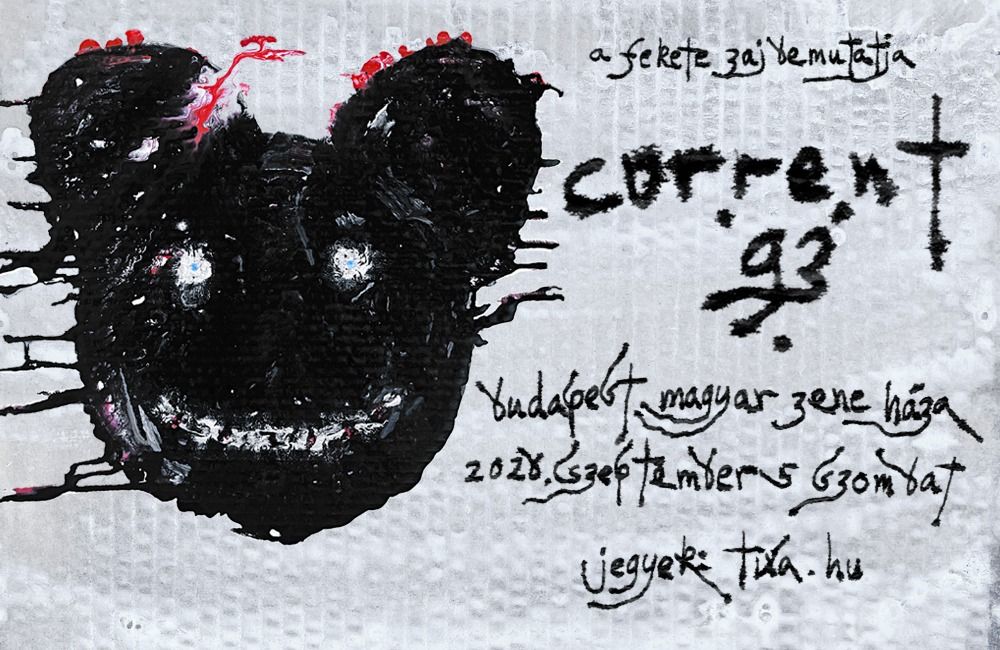 a fekete zaj bemutatja
current
93
budapest. magyar zene háza
2026. szeptember 5 szombat
jegyek: tixa.hu